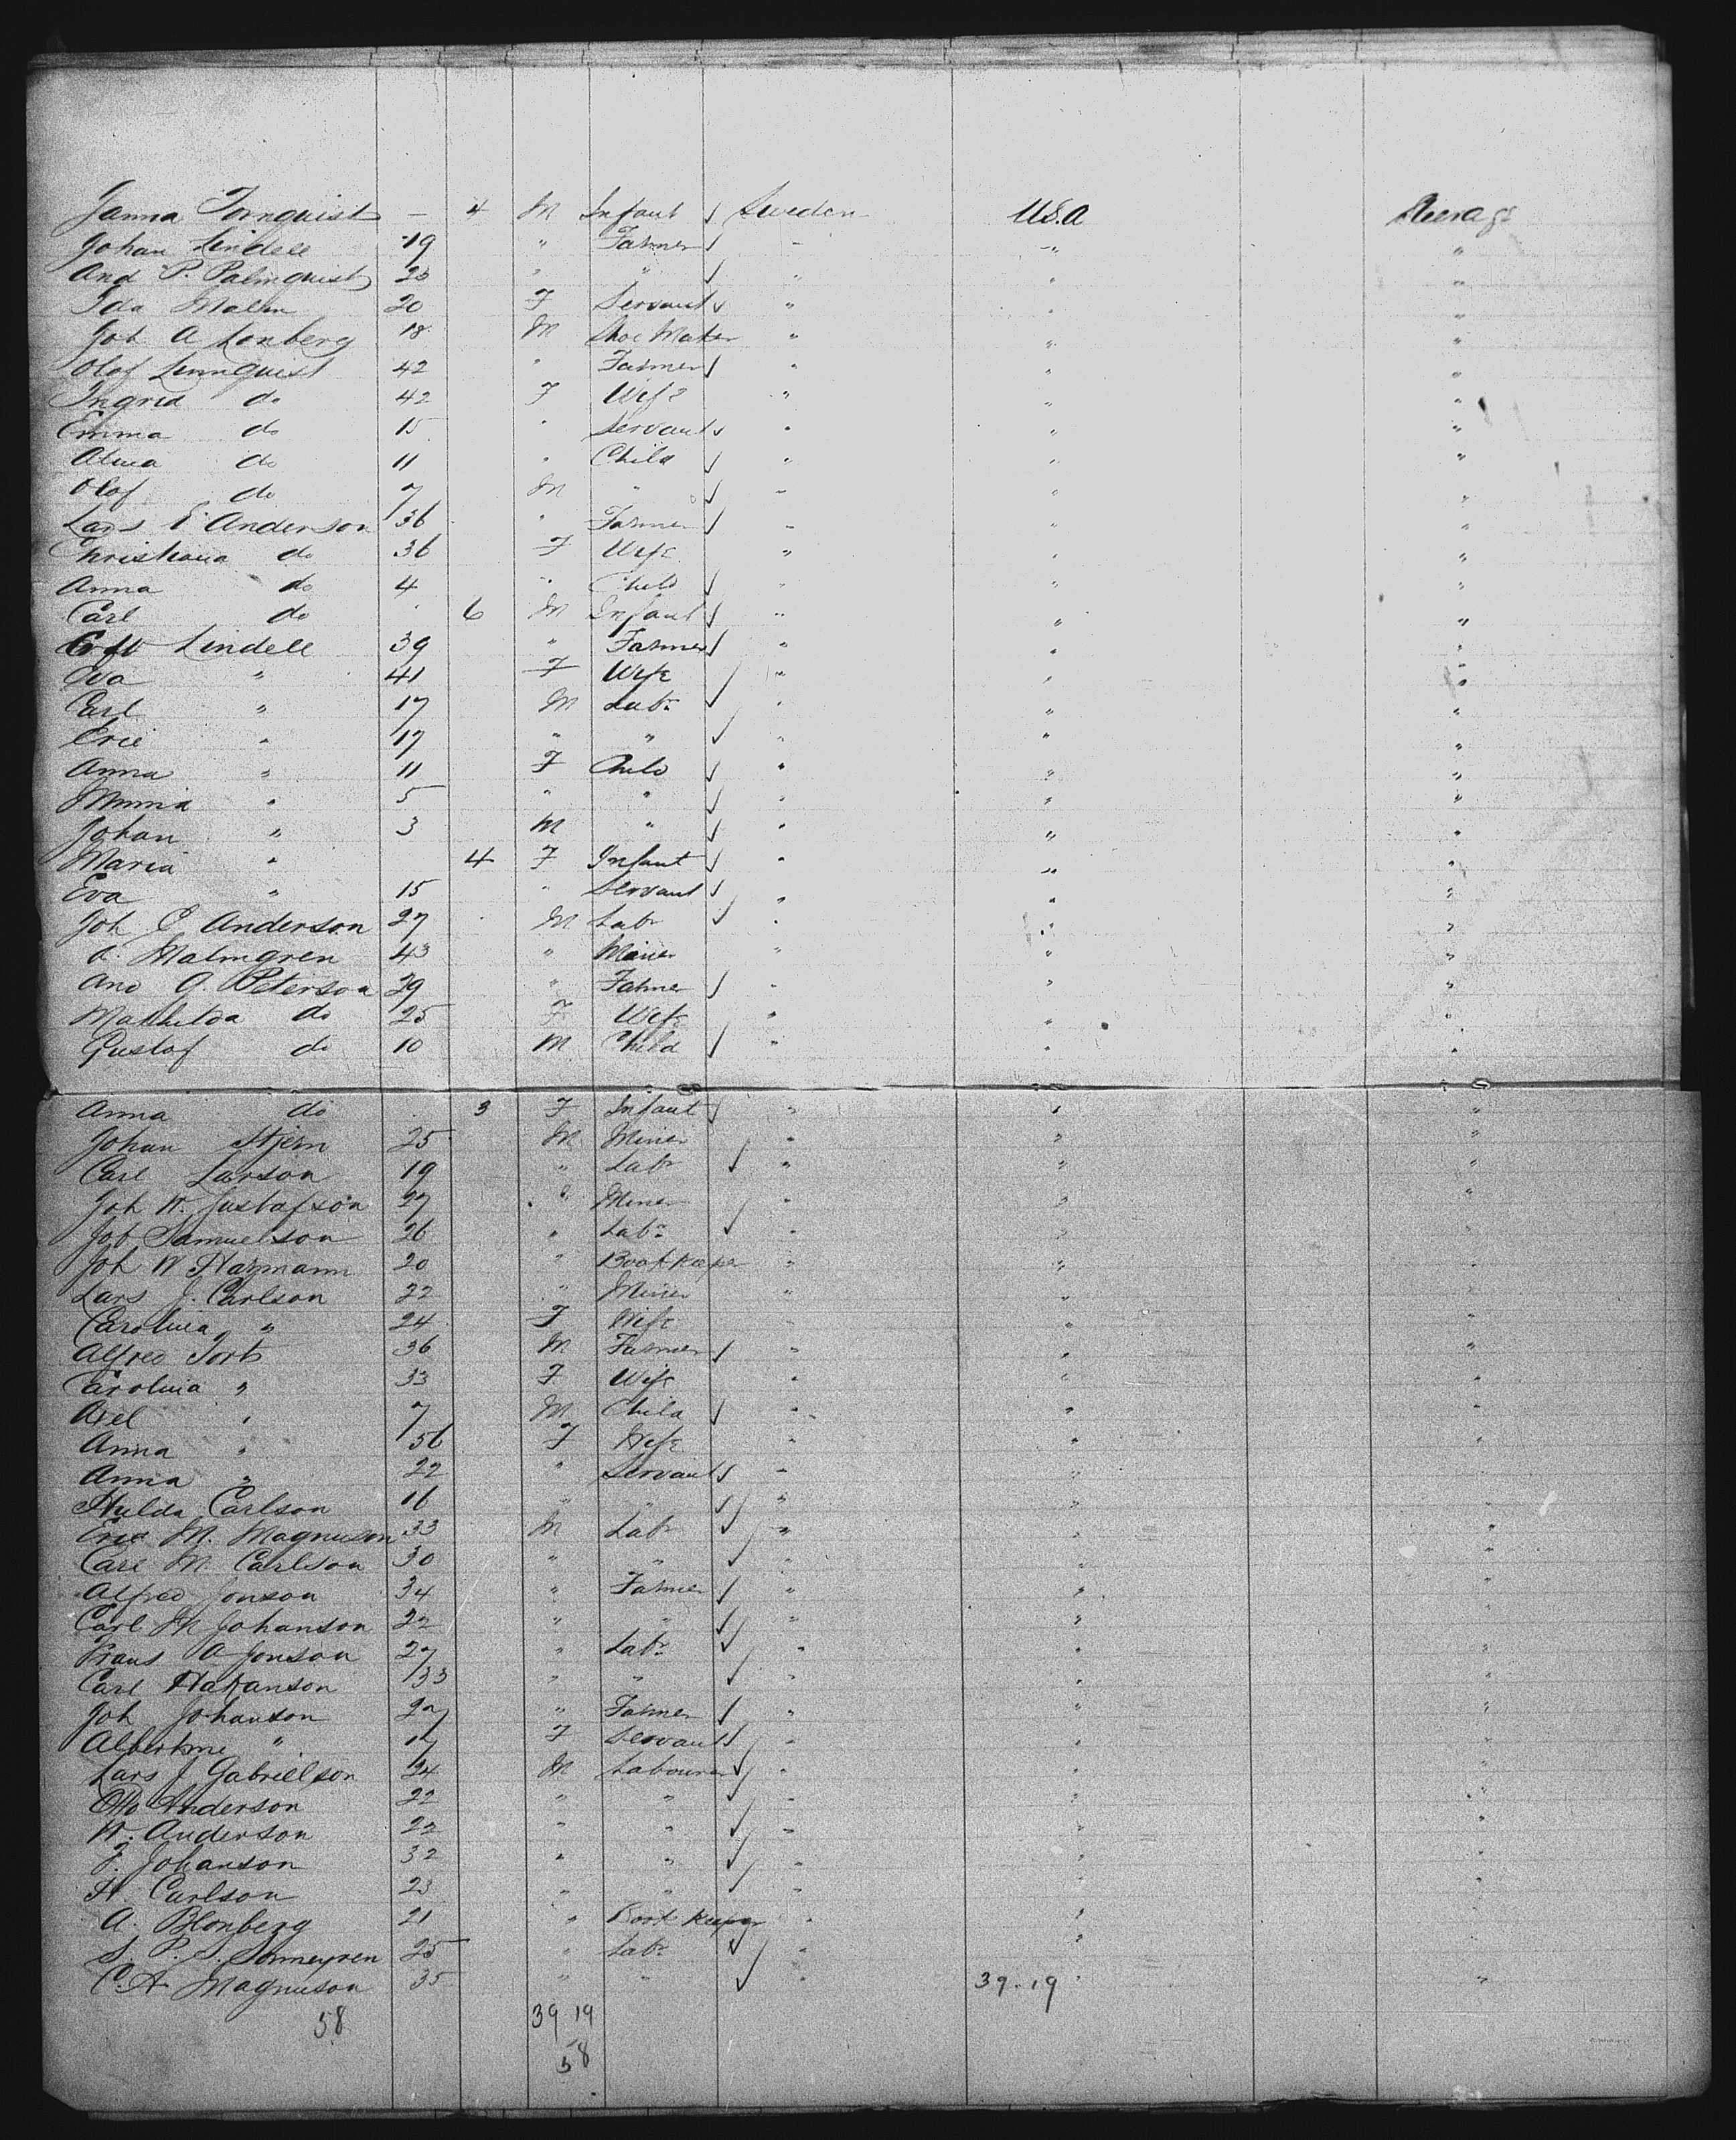 Janna Tornquist — 4 M Infant ✓ Sweden U.S.A Steerage
Johan Lindell 19 " Farmer ✓ " " "
And P. Palmquist 23 " " ✓ " " "
Ida Malm 20 F Servant ✓ " " "
Joh A Lonberg 18 M Shoe Maker " " "
Olof Lennquist 42 " Farmer ✓ " " "
Ingrid do 42 F Wife " " "
Emma do 15 " Servant ✓ " " "
Alma do 11 " Child ✓ " " "
Olof do 7 M " ✓ " " "
Lars E Anderson 36 " Farmer ✓ " " "
Christiana do 36 F Wife " " "
Anna do 4 " Child ✓ " " "
Carl do 6 M Infant ✓ " " "
Lindell 39 " Farmer ✓ " " "
Eva " 41 F Wife " " "
Carl " 17 M Labr ✓ " " "
Eric " 17 " " ✓ " " "
Anna " 11 F Child ✓ " " "
Minna " 5 " " ✓ " " "
Johan " 3 M " ✓ " " "
Maria " 4 F Infant ✓ " " "
Eva " 15 " Servant ✓ " " "
Joh E Anderson 27 M Labr ✓ " " "
Malmgren 43 " Miner " " "
And G. Peterson 29 " Farmer ✓ " " "
Mathilda do 25 F Wife " " "
Gustof do 10 M Child ✓ " " "
Anna do 3 F Infant ✓ " " "
Johan Stjern 25 M Miner " " "
Carl Larson 19 " Labr ✓ " " "
Joh W. Gustafson 27 " Miner " " "
Joh Samuelson 26 " Labr ✓ " " "
Joh W Hazmann 20 " Book Keeper " " "
Lars J. Carlson 22 " Miner " " "
Carolina " 24 F Wife " " "
Alfred 36 M Farmer ✓ " " "
Carolina " 33 F Wife " " "
Axel " 7 M Child ✓ " " "
Anna " 56 F Wife " " "
Anna " 22 " Servant ✓ " " "
Hulda Carlson 16 " " ✓ " " "
Eric M. Magnuson 33 M Labr ✓ " " "
Carl M. Carlson 30 " " ✓ " " "
Alfred Jonson 34 " Farmer ✓ " " "
Carl M Johanson 22 " " ✓ " " "
Frans A Jonson 27 " Labr ✓ " " "
Carl Hakanson 33 " " ✓ " " "
Joh Johanson 27 " Farmer ✓ " " "
Albertine " 17 F Servant ✓ " " "
Lars J Gabrielson 24 M Labourer ✓ " " "
Otto Anderson 22 " " ✓ " " "
W. Anderson 22 " " ✓ " " "
F. Johanson 32 " " ✓ " " "
H. Carlson 23 " " ✓ " " "
A. Blonberg 21 " Book Keeper " " "
S. P. S. 25 " Labr ✓ " " "
C. A Magnuson 35 " " ✓ " 39-19 " "
58 39 19
58